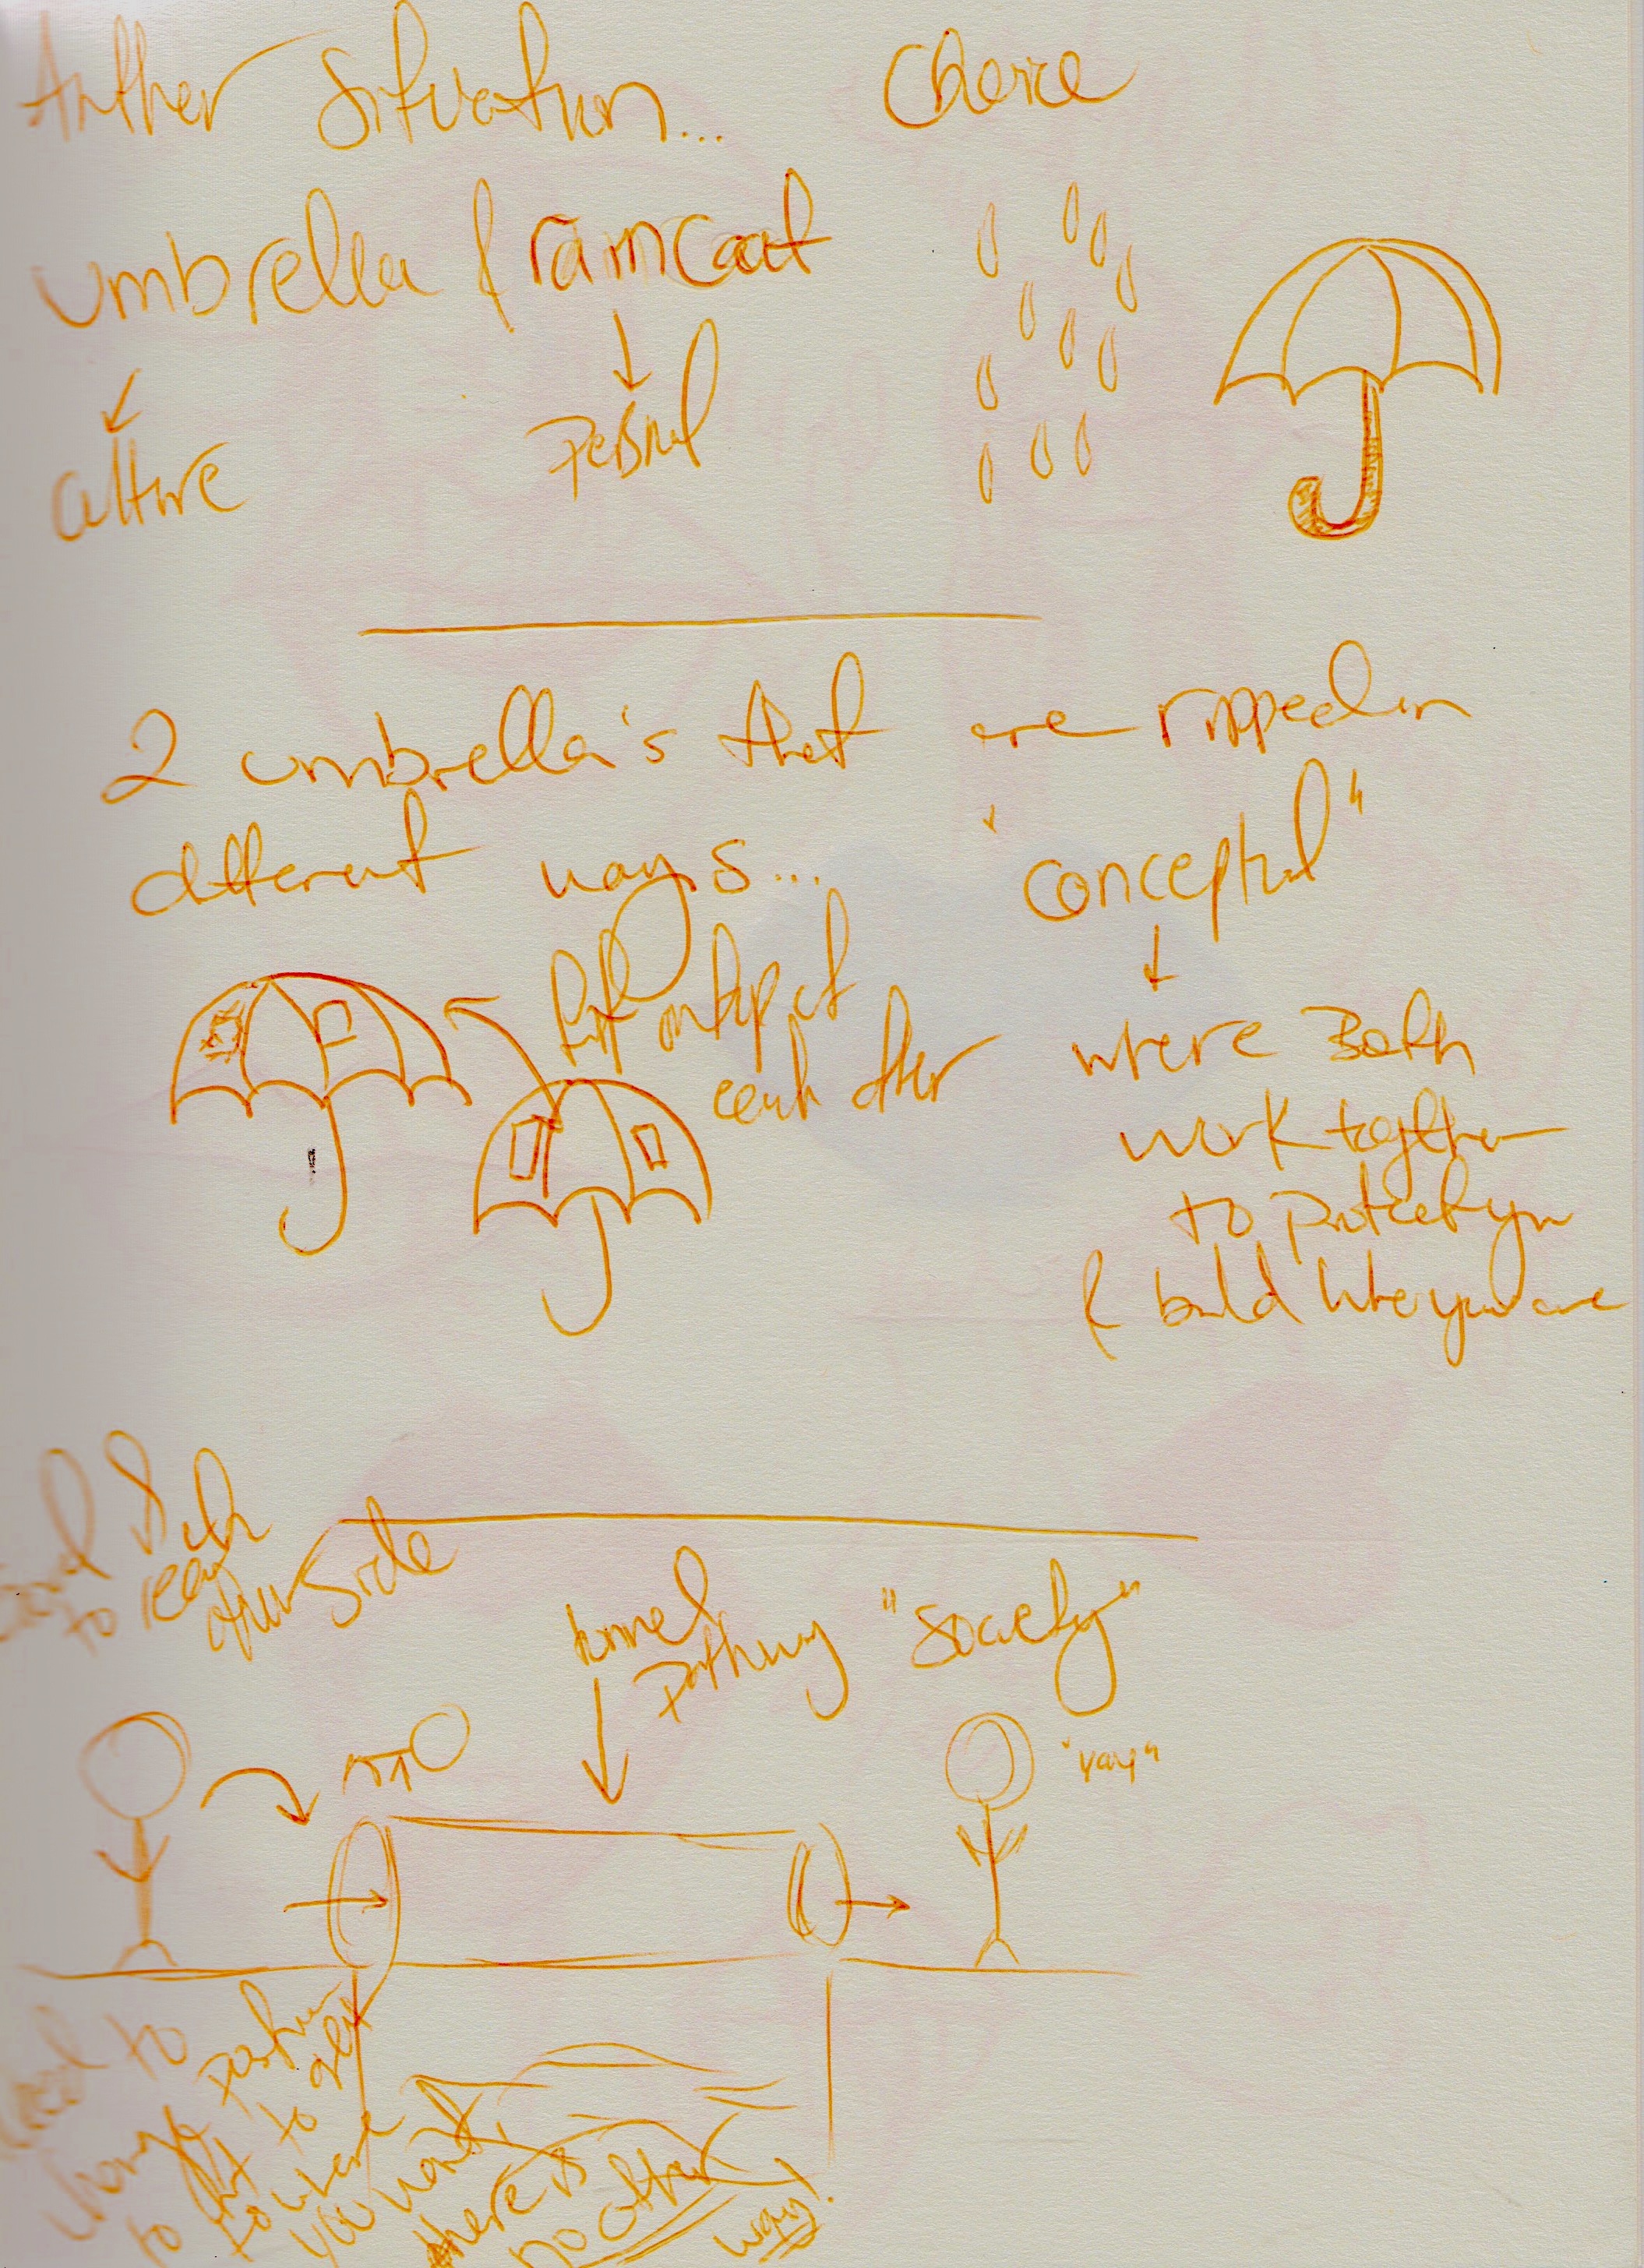 Another Situation... Choice
umbrella & raincoat
culture
personal
2 umbrella's that are ripped in
different ways...
"conceptual"
put on top of
each other
where Both
work together
to protect you
& build who you are
to reach
other side
tunnel
pathway "society"
"yay"
to
change position
to fit to get
to where
you want,
there is
no other
way!